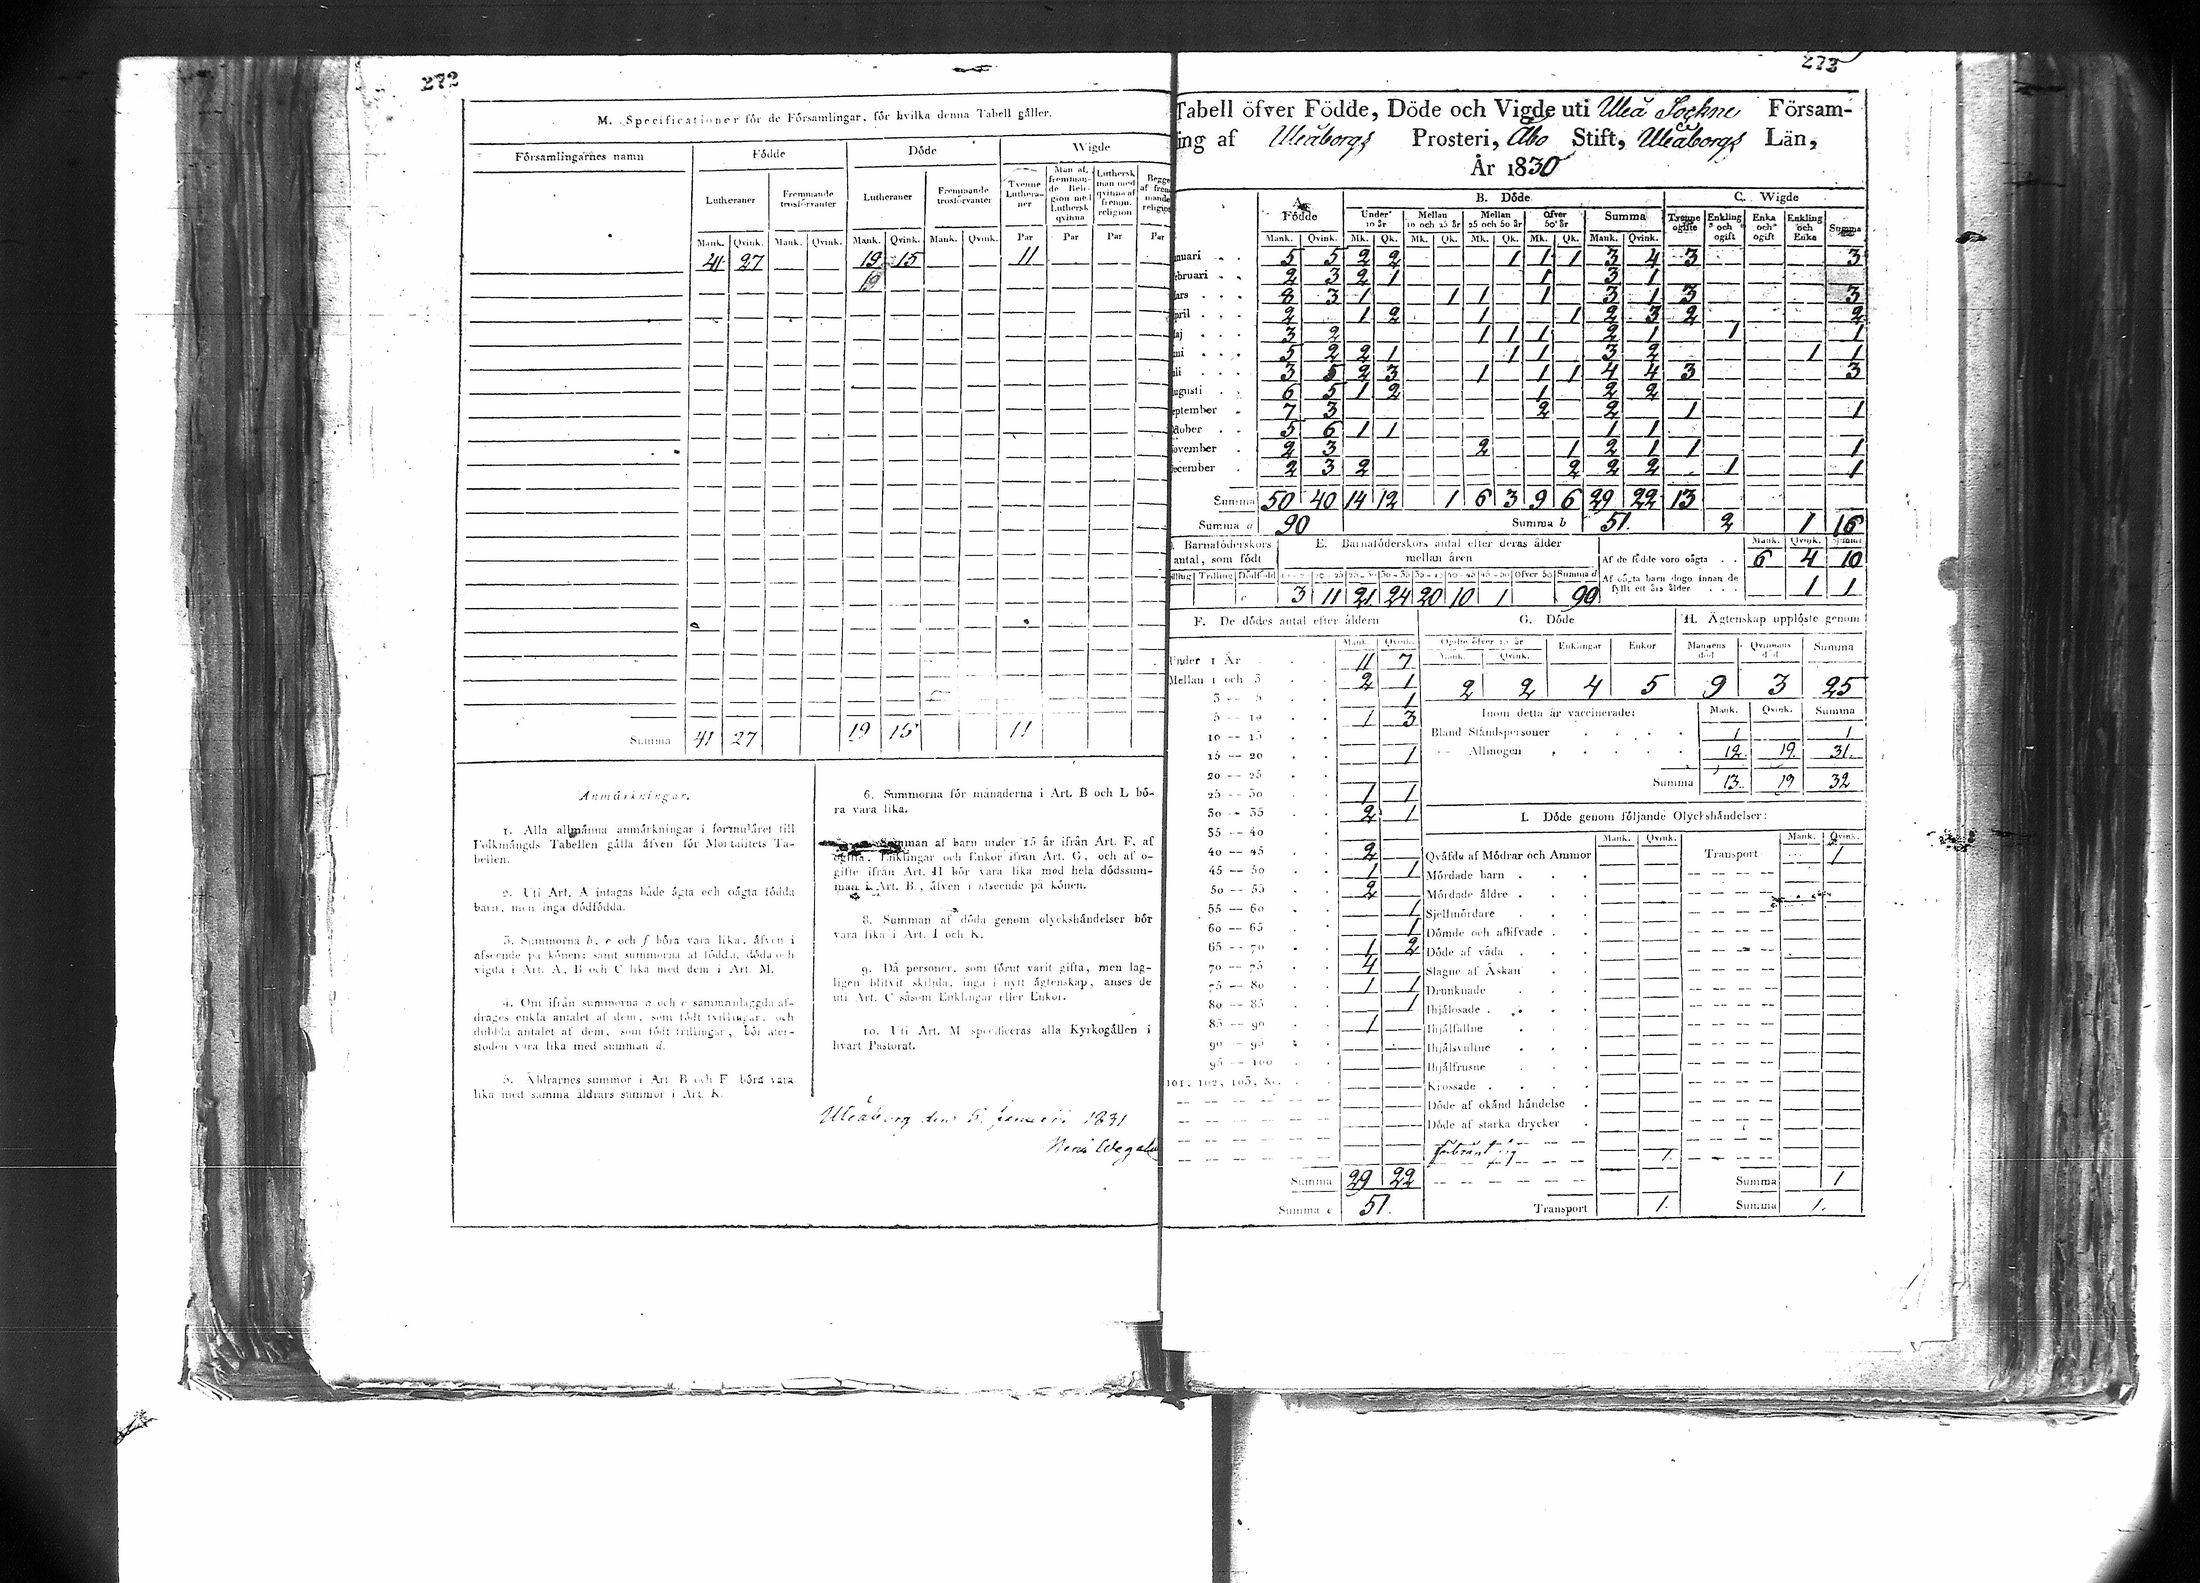 272
M. Specificationer för de Församlingar, för hvilka denna Tabell gäller.
Församlingarnes namn Födde Döde Wigde
Lutheraner Fremmande trosförvanter Lutheraner Fremmande trosförvanter Tvenne Lutheraner Man af fremmande Religion med Luthersk qvinna Luthersk man med qvinna af fremm. religion Begge af fremmande religion
Mank. Qvink. Mank. Qvink. Mank. Qvink. Mank. Qvink. Par Par Par Par
41 27 19 15 11
19
Summa 41 27 19 15 11
Anmärkningar.
1. Alla allmänna anmärkningar i formuläret till
Folkmängds Tabellen gälla äfven för Mortalitets Ta-
bellen.
2. Uti Art. A intagas både ägta och oägta födda
barn, men inga dödfödda.
3. Summorna b, e och f böra vara lika, äfven i
afseende på könen; samt summorna af födda, döda och
vigda i Art. A, B och C lika med dem i Art. M.
4. Om ifrån summorna a och c sammanlaggda af-
drages enkla antalet af dem, som födt tvillingar, och
dubbla antalet af dem, som födt trillingar, bör åter-
stoden vara lika med summan d.
5. Åldrarnes summor i Art B och F böra vara
lika med samma åldrars summor i Art. K.
6. Summorna för månaderna i Art. B och L bö-
ra vara lika.
Summan af barn under 15 år ifrån Art. F, af
ogifta, Enklingar och Enkor ifrån Art. G, och af o-
gifte ifrån Art. H bör vara lika med hela dödssum-
man i Art. B, äfven i afseende på könen.
8. Summan af döda genom olyckshändelser bör
vara lika i Art. I och K.
9. Då personer, som förut varit gifta, men lag-
ligen blifvit skilnda, ingå i nytt ägtenskap, anses de
uti Art. C såsom Enklingar eller Enkor.
10. Uti Art. M specificeras alla Kyrkogällen i
hvart Pastorat.
Uleåborg den 5. Januarii 1831
273
Tabell öfver Födde, Döde och Vigde uti Uleå Sockne Försam-
ing af Uleåborgs Prosteri, Åbo Stift, Uleåborgs Län,
År 1830
A. Födde B. Döde C. Wigde
Under 10 år Mellan 10 och 25 år Mellan 25 och 50 år Öfver 50 år Summa Tvenne ogifte Enkling och ogift Enka och ogift Enkling och Enka Summa
Mank. Qvink. Mk. Qk. Mk. Qk. Mk. Qk. Mk. Qk. Mank. Qvink.
nuari 5 5 2 2 1 1 1 3 4 3 3
ebruari 2 3 2 1 1 3 1
ars 8 3 1 1 1 1 3 1 3 3
pril 2 1 2 1 1 2 3 2 2
aj 3 2 1 1 1 2 1 1 1
ni 5 2 2 1 1 1 3 2 1 1
li 3 5 2 3 1 1 1 4 4 3 3
ugusti 6 5 1 2 1 2 2
eptember 7 3 2 2 1 1
ktober 5 6 1 1 1 1
ovember 2 3 2 1 2 1 1 1
ecember 2 3 2 2 2 2 1 1
Summa 50 40 14 12 1 6 3 9 6 29 22 13
Summa a 90 Summa b 51. 2 1 16
Barnaföderskors antal, som födt
illing Trilling Dödfödd
E. Barnaföderskors antal efter deras ålder
mellan åren
20-25 25-30 30-35 35-40 40-45 45-50 Öfver 50 Summa d
3 11 21 24 20 10 1 90
Mank. Qvink. Summa
Af de födde voro oägta 6 4 10
Af oägta barn dogo innan de
fyllt ett års ålder 1 1
F. De dödes antal efter åldern
Mank. Qvink.
Under 1 År 11 7
Mellan 1 och 3 2 1
3 — 5 1
5 — 10 1 3
10 — 15
15 — 20 1
20 — 25
25 — 30 1 1
30 — 35 2 1
35 — 40
40 — 45 2
45 — 50 1 1
50 — 55 2
55 — 60 1
60 — 65 1
65 — 70 1 2
70 — 75 4
75 — 80 1 1
80 — 85 1
85 — 90 1
90 — 95
95 — 100
101, 102, 103, &c.
Summa 29 22
Summa e 51.
G. Döde
Ogifte öfver 15 år Enklingar Enkor
Mank. Qvink.
2 2 4 5
H. Ägtenskap upplöste genom
Mannens död Qvinnans död Summa
9 3 25
Inom detta år vaccinerade: Mank. Qvink. Summa
Bland Ståndspersoner 1 1
— Allmogen 12. 19. 31.
Summa 13. 19 32
I. Döde genom följande Olyckshändelser:
Mank. Qvink. Mank. Qvink.
Qväfde af Mödrar och Ammor Transport 1
Mördade barn
Mördade äldre
Sjelfmördare
Dömde och aflifvade
Döde af våda
Slagne af Åskan
Drunknade
Ihjälosade
Ihjälfallne
Ihjälsvultne
Ihjälfrusne
Krossade
Döde af okänd händelse
Döde af starka drycker
1.
Summa 1
Transport 1. Summa 1.